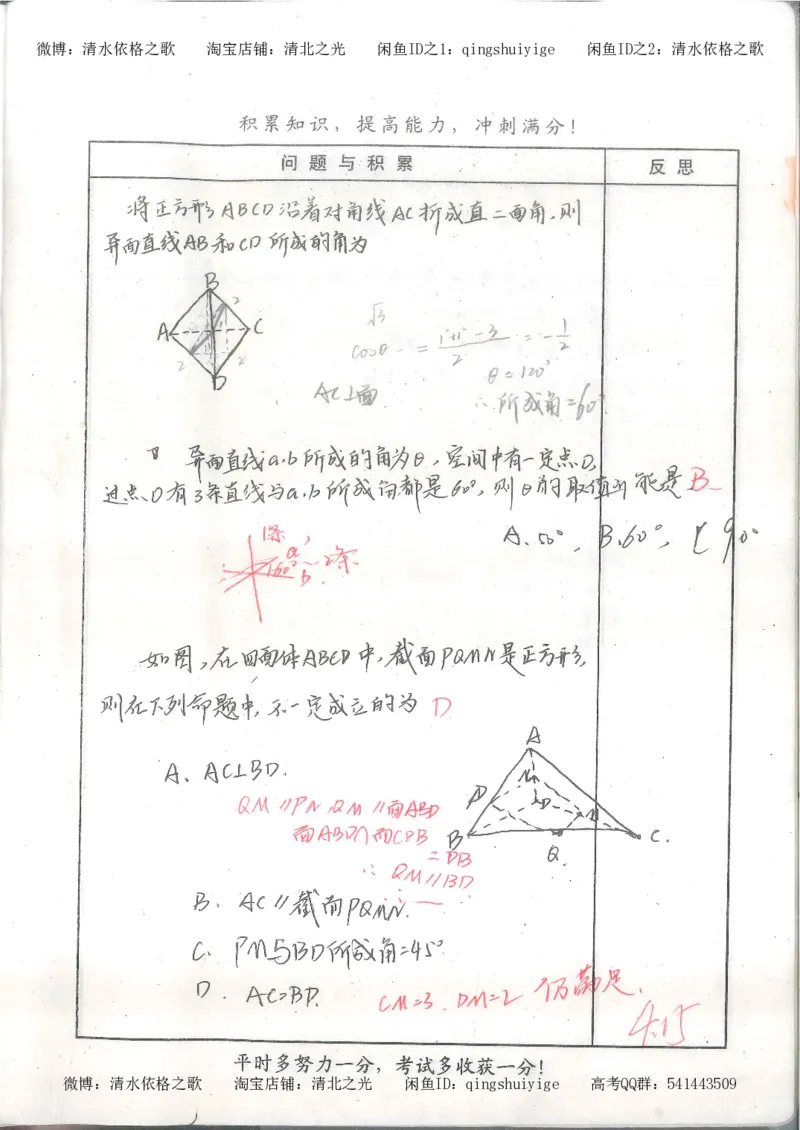 微博：清水依格之歌 淘宝店铺：清北之光 闲鱼ID之1：qingshuiyige 闲鱼ID之2：清水依格之歌
积累知识，提高能力，冲刺满分！
问题与积累 反思
将正方形ABCD沿着对角线AC折成直二面角,则
异面直线AB和CD所成的角为
B
A C
2
2 2
D
√3
cosθ = (1+1-3)/2 = -1/2
θ=120°
AC⊥面 ∴所成角=60°
异面直线a.b所成的角为θ,空间中有一定点O,
过点O有3条直线与a.b所成角都是60°,则θ的取值可能是 B
A.50°, B.60°, C 90°
1条,
a
160° 2条
b
如图,在四面体ABCD中,截面PQMN是正方形,
则在下列命题中,不一定成立的为 D
A
A、AC⊥BD.
QM//PN,QM//面ABD
面ABD∩面CDB
=DB
∴QM//BD
N
P
D
M
B C.
Q.
B. AC//截面PQMN.
C. PM与BD所成角=45°
D. AC=BD. CM=3. DM=2 仍满足.
4.15
平时多努力一分，考试多收获一分！
微博：清水依格之歌 淘宝店铺：清北之光 闲鱼ID：qingshuiyige 高考QQ群：541443509